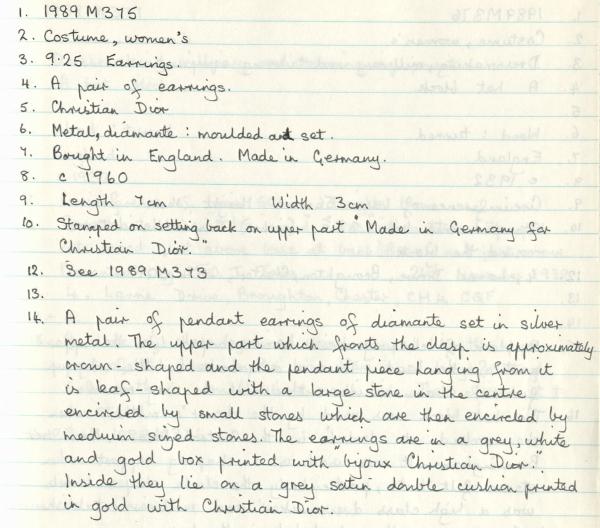 1. 1989 M375
2. Costume, women's
3. 9.25 Earrings.
4. A pair of earrings.
5. Christian Dior
6. Metal, diamante : moulded and set.
7. Bought in England. Made in Germany.
8. c 1960
9. Length 7cm Width 3cm
10. Stamped on setting back on upper part "Made in Germany for
Christian Dior."
12. See 1989 M373
13.
14. A pair of pendant earrings of diamante set in silver
metal. The upper part which fronts the clasp is approximately
crown-shaped and the pendant piece hanging from it
is leaf-shaped with a large stone in the centre
encircled by small stones which are then encircled by
medium sized stones. The earrings are in a grey, white
and gold box printed with "bijoux Christian Dior".
Inside they lie on a grey satin double cushion printed
in gold with Christian Dior.